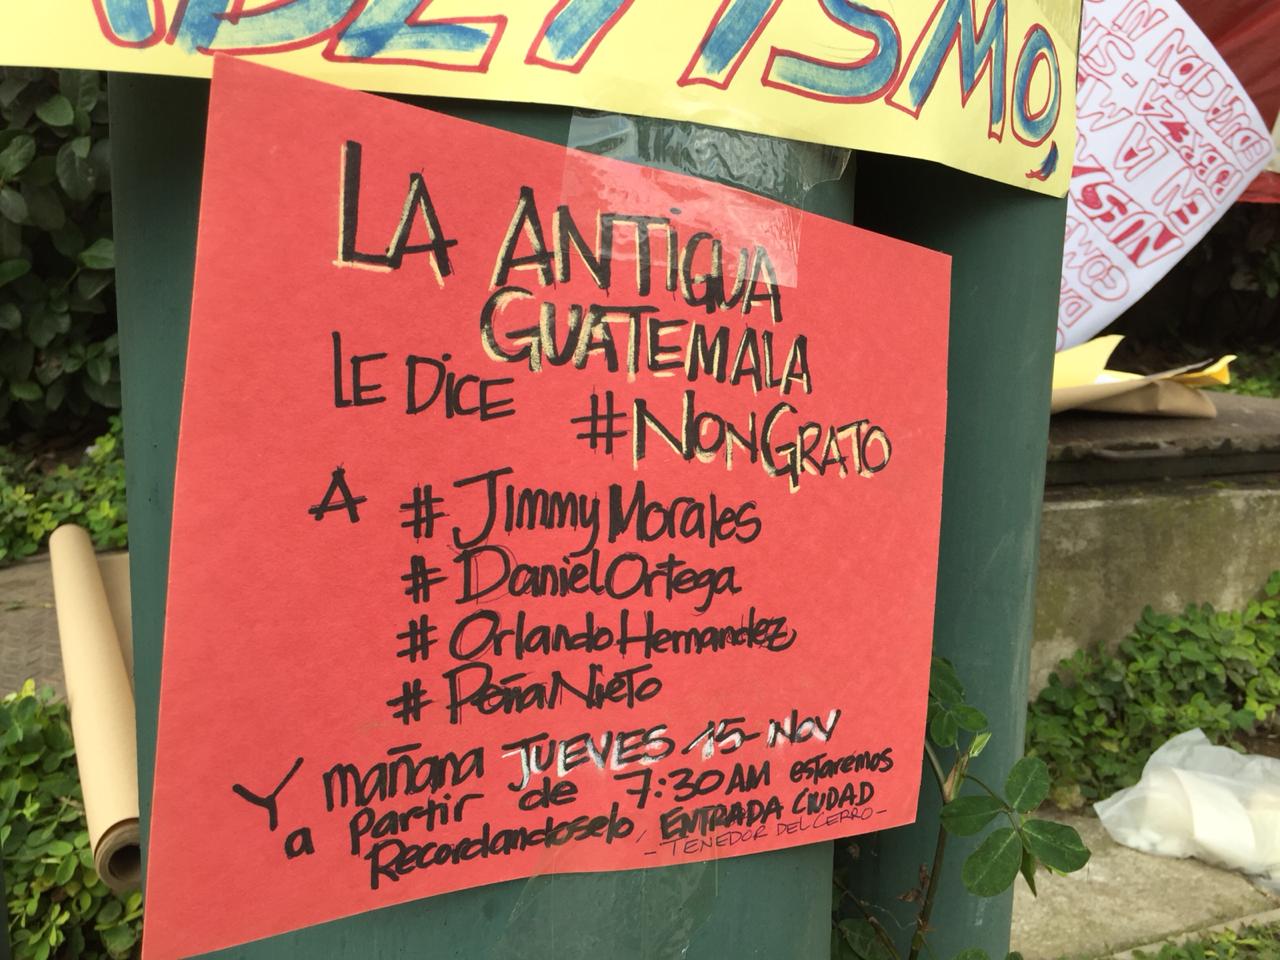 LA ANTIGUA
GUATEMALA
LE DICE #NONGRATO
A #JimmyMorales
#DanielOrtega
#OrlandoHernandez
#PeñaNieto
Y mañana JUEVES 15- NOV
a partir de 7:30AM estaremos
Recordandoselo ENTRADA CIUDAD
- TENEDOR DEL CERRO -
EN LA
NUES